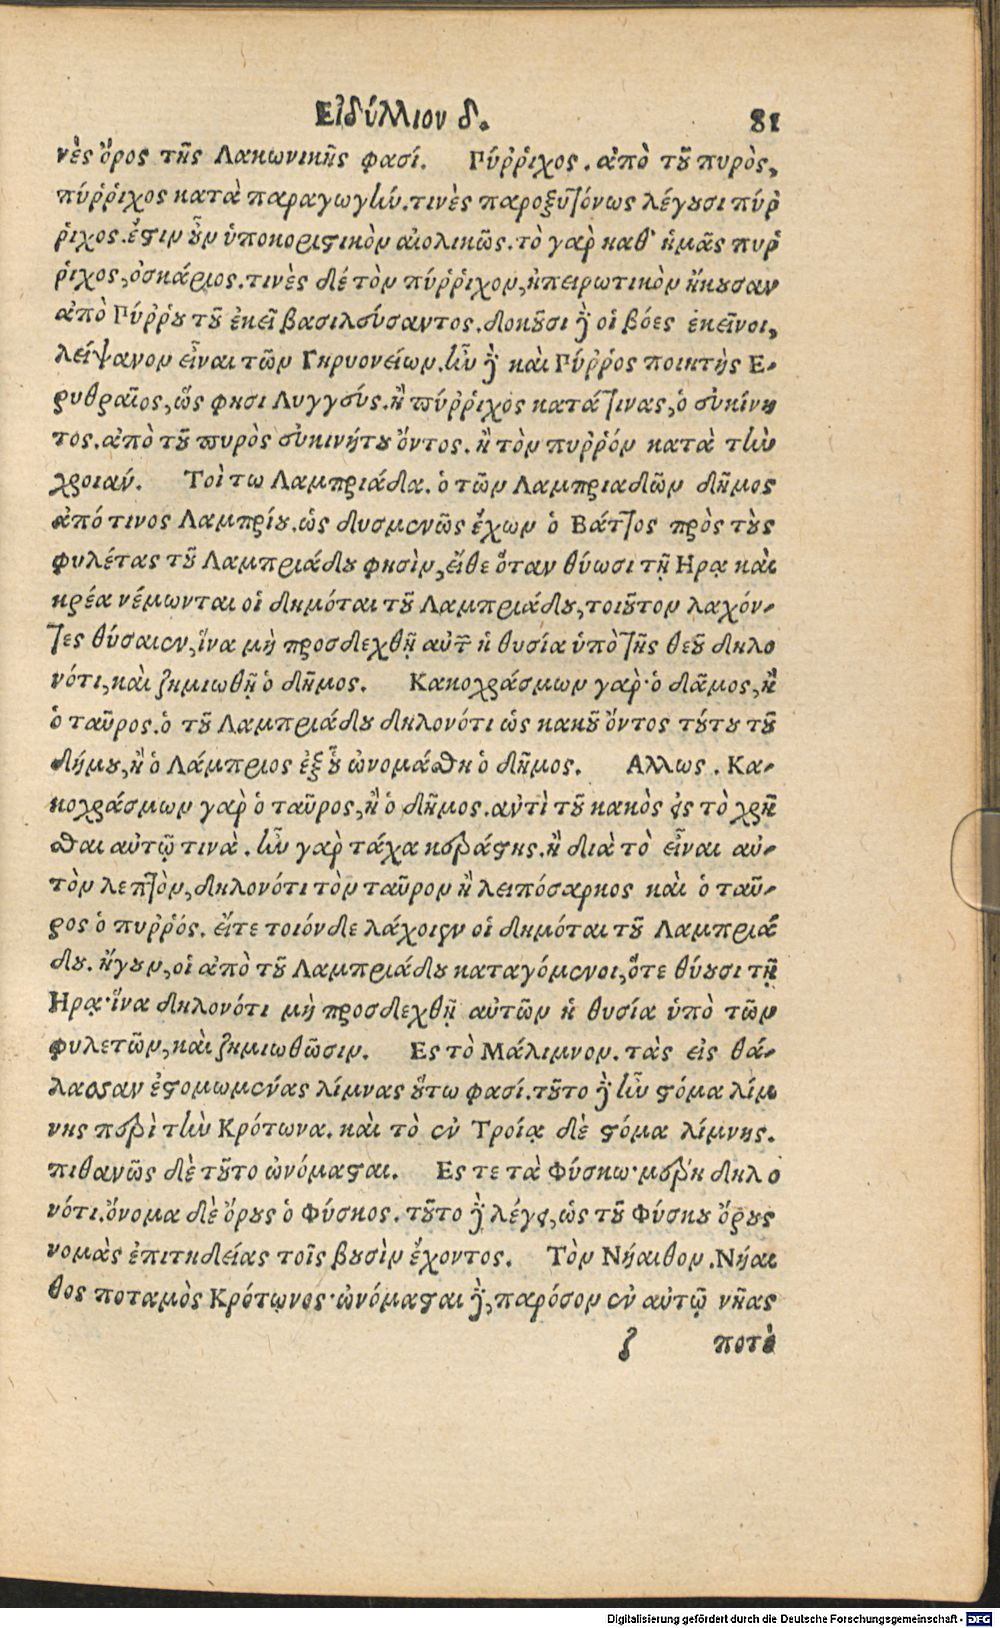 Εἰδύλλιον δ. 81
νὲς ὄρος τῆς Λακωνικῆς φασί. Πύῤῥιχος. ἀπὸ τοῦ πυρὸς,
πύῤῥιχος κατὰ παραγωγὴν. τινὲς παροξυτόνως λέγουσι πύῤ
ῥιχος. ἔστιν οὖν ὑποκοριστικὸν αἰολικῶς. τὸ γὰρ καθ' ἡμᾶς πυῤ
ῥιχος, ὁσκάριος. τινὲς δέ τὸν πύῤῥιχον, ἠπειρωτικὸν ἤκουσαν
ἀπὸ Πύῤῥου τοῦ ἐκεῖ βασιλεύσαντος. δοκοῦσι γὰρ οἱ βόες ἐκεῖνοι,
λείψανον εἶναι τῶν Γηρυονείων. ἦν γὰρ καὶ Πύῤῥος ποιητὴς Ε-
ρυθραῖος, ὥς φησι Λυγγεύς. ἢ πύῤῥιχος κατά τινας, ὁ εὐκίνη
τος. ἀπὸ τοῦ πυρὸς εὐκινήτου ὄντος. ἢ τὸν πυῤῥόν κατὰ τὴν
χροιάν. Τοὶ τω Λαμπριάδα. ὁ τῶν Λαμπριαδῶν δῆμος
ἀπό τινος Λαμπρίου. ὡς δυσμενῶς ἔχων ὁ Βάττος πρὸς τοὺς
φυλέτας τοῦ Λαμπριάδου φησὶν, εἴθε ὅταν θύωσι τῇ Ηρᾳ καὶ
κρέα νέμωνται οἱ δημόται τοῦ Λαμπριάδου, τοιοῦτον λαχόν-
τες θύσαιεν, ἵνα μὴ προσδεχθῇ αὐτ̃ ἡ θυσία ὑπὸ τῆς θεοῦ δηλο
νότι, καὶ ζημιωθῇ ὁ δῆμος. Κακοχράσμων γὰρ· ὁ δᾶμος, ἢ
ὁ ταῦρος. ὁ τοῦ Λαμπριάδου δηλονότι ὡς κακοῦ ὄντος τούτου τοῦ
δήμου, ἢ ὁ Λάμπριος ἐξ οὗ ὠνομάσθη ὁ δῆμος. Αλλως. Κα-
κοχράσμων γὰρ ὁ ταῦρος, ἢ ὁ δῆμος. ἀντὶ τοῦ κακὸς εἰς τὸ χρῆ
σθαι αὐτῷ τινὰ. ἦν γὰρ τάχα κεράστης. ἢ διὰ τὸ εἶναι αὐ-
τὸν λεπτὸν, δηλονότι τὸν ταῦρον ἢ λειπόσαρκος καὶ ὁ ταῦ-
ρος ὁ πυῤῥός. εἴτε τοιόνδε λάχοιεν οἱ δημόται τοῦ Λαμπριά
δου. ἤγουν, οἱ ἀπὸ τοῦ Λαμπριάδου καταγόμενοι, ὅτε θύουσι τῇ
Ηρᾳ· ἵνα δηλονότι μὴ προσδεχθῇ αὐτῶν ἡ θυσία ὑπὸ τῶν
φυλετῶν, καὶ ζημιωθῶσιν. Ες τὸ Μάλιμνον. τὰς εἰς θά-
λασσαν ἐστομωμένας λίμνας οὕτω φασί. τοῦτο γὰρ ἦν στόμα λίμ
νης περὶ τὴν Κρότωνα. καὶ τὸ ἐν Τροίᾳ δὲ στόμα λίμνης.
πιθανῶς δὲ τοῦτο ὠνόμασται. Ες τε τὰ Φύσκω· μέρη δηλο
νότι. ὄνομα δὲ ὄρους ὁ Φύσκος. τοῦτο γὰρ λέγει, ὡς τοῦ Φύσκου ὄρους
νομὰς ἐπιτηδείας τοῖς βουσὶν ἔχοντος. Τὸν Νήαιθον. Νήαι
θος ποταμὸς Κρότωνος· ὠνόμασται γὰρ, παρόσον ἐν αὐτῷ νῆας
ζ ποτὲ